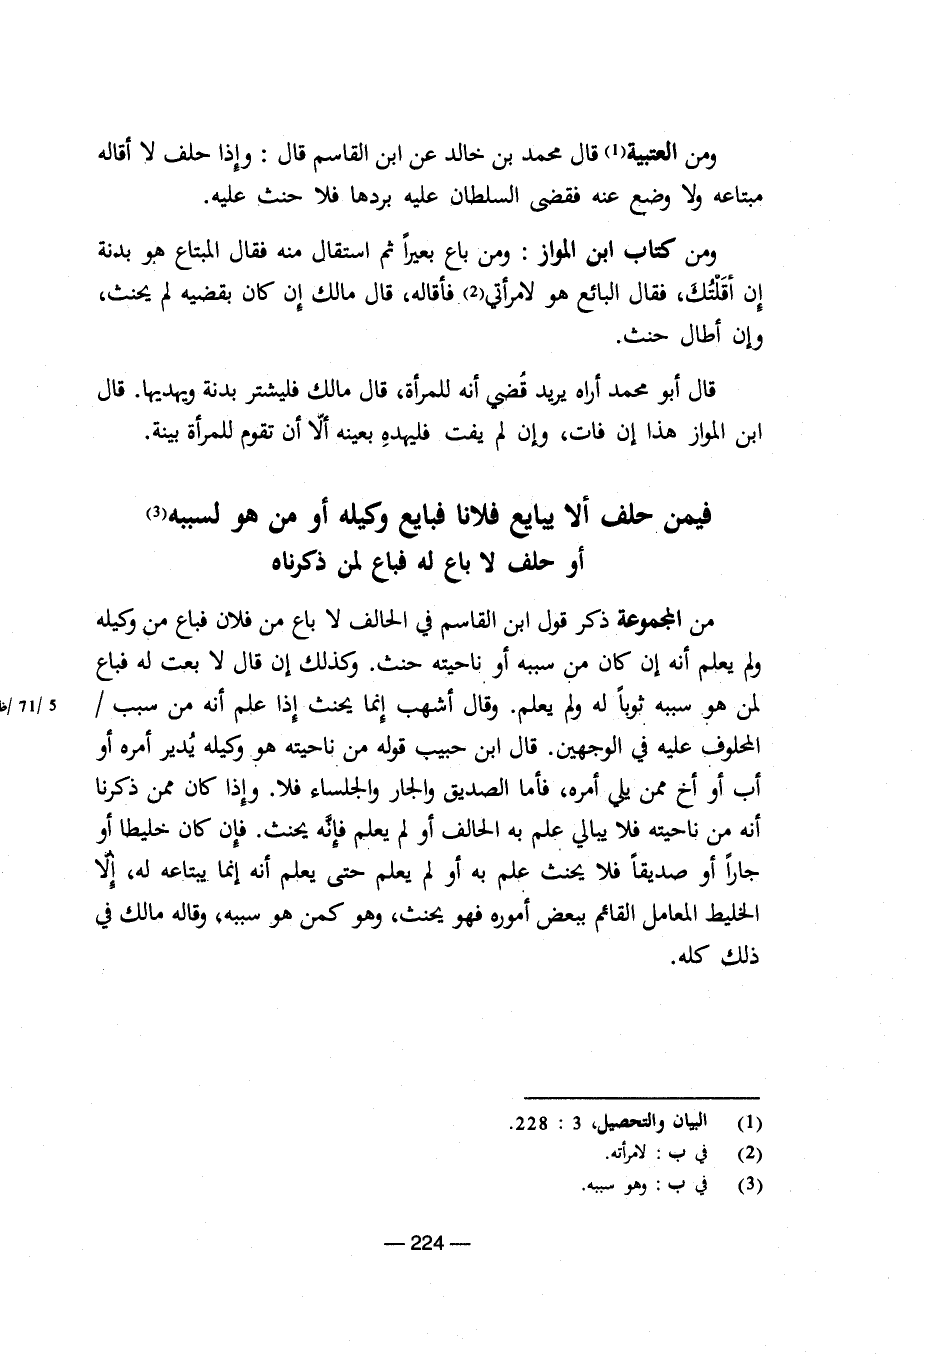 ومن العتبية(1) قال محمد بن خالد عن ابن القاسم قال : وإذا حلف لا أقاله
مبتاعه ولا وضع عنه فقضى السلطان عليه بردها فلا حنث عليه.
ومن كتاب ابن المواز : ومن باع بعيراً ثم استقال منه فقال المبتاع هو بدنة
إن أَقَلْتُكَ، فقال البائع هو لامرأتي(2) فأقاله، قال مالك إن كان بقضيه لم يحنث،
وإن أطال حنث.
قال أبو محمد أراه يريد قُضي أنه للمرأة، قال مالك فليشتر بدنة ويهديها. قال
ابن المواز هذا إن فات، وإن لم يفت فليهدهِ بعينه ألّا أن تقوم للمرأة بينة.
فيمن حلف ألا يبايع فلانا فبايع وكيله أو من هو لسببه(3)
أو حلف لا باع له فباع لمن ذكرناه
من المجموعة ذكر قول ابن القاسم في الحالف لا باع من فلان فباع من وكيله
ولم يعلم أنه إن كان من سببه أو ناحيته حنث. وكذلك إن قال لا بعت له فباع
لمن هو سببه ثوباً له ولم يعلم. وقال أشهب إنما يحنث إذا علم أنه من سبب /
5 /71 /ظ
المحلوف عليه في الوجهين. قال ابن حبيب قوله من ناحيته هو وكيله يُدير أمره أو
أب أو أخ ممن يلي أمره، فأما الصديق والجار والجلساء فلا. وإذا كان ممن ذكرنا
أنه من ناحيته فلا يبالي علم به الحالف أو لم يعلم فإنَّه يحنث. فإن كان خليطا أو
جاراً أو صديقاً فلا يحنث علم به أو لم يعلم حتى يعلم أنه إنما يبتاعه له، إلّا
الخليط المعامل القائم ببعض أموره فهو يحنث، وهو كمن هو سببه، وقاله مالك في
ذلك كله.
(1) البيان والتحصيل، 3 : 228.
(2) في ب : لامرأته.
(3) في ب : وهو سببه.
— 224 —